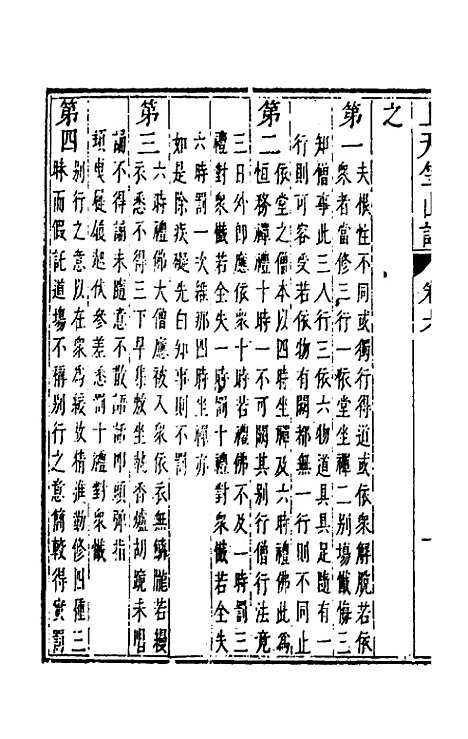 上天竺山志 卷六 一
之
第一 夫根性不同或獨行得道或依衆解脫若依
衆者當修三行一依堂坐禪二别塲懺悔三
知僧事此三人行三依六物道具具足隨有一
行則可容受若依物有闕都無一行則不同止
第二 依堂之僧本以四時坐禪及六時禮佛此爲
恒務禪禮十時一不可闕其别行僧行法竟
三日外即應依衆十時若禮佛不及一時罰三
禮對衆懺若全失一時罰十禮對衆懺若全失
六時罰一次維那四時坐禪亦
如是除疾礙先白知事則不罰
第三 六時禮佛大僧應被入衆依衣無鱗隴若縵
衣悉不得三下早集敷坐執香爐胡跪未唱
誦不得誦未隨意不散語話叩頭彈指
頓曳屣履起伏參差悉罰十禮對衆懺
第四 别行之意以在衆爲緩故精進勤修四種三
昧而假託道塲不稱别行之意簡較得實罰